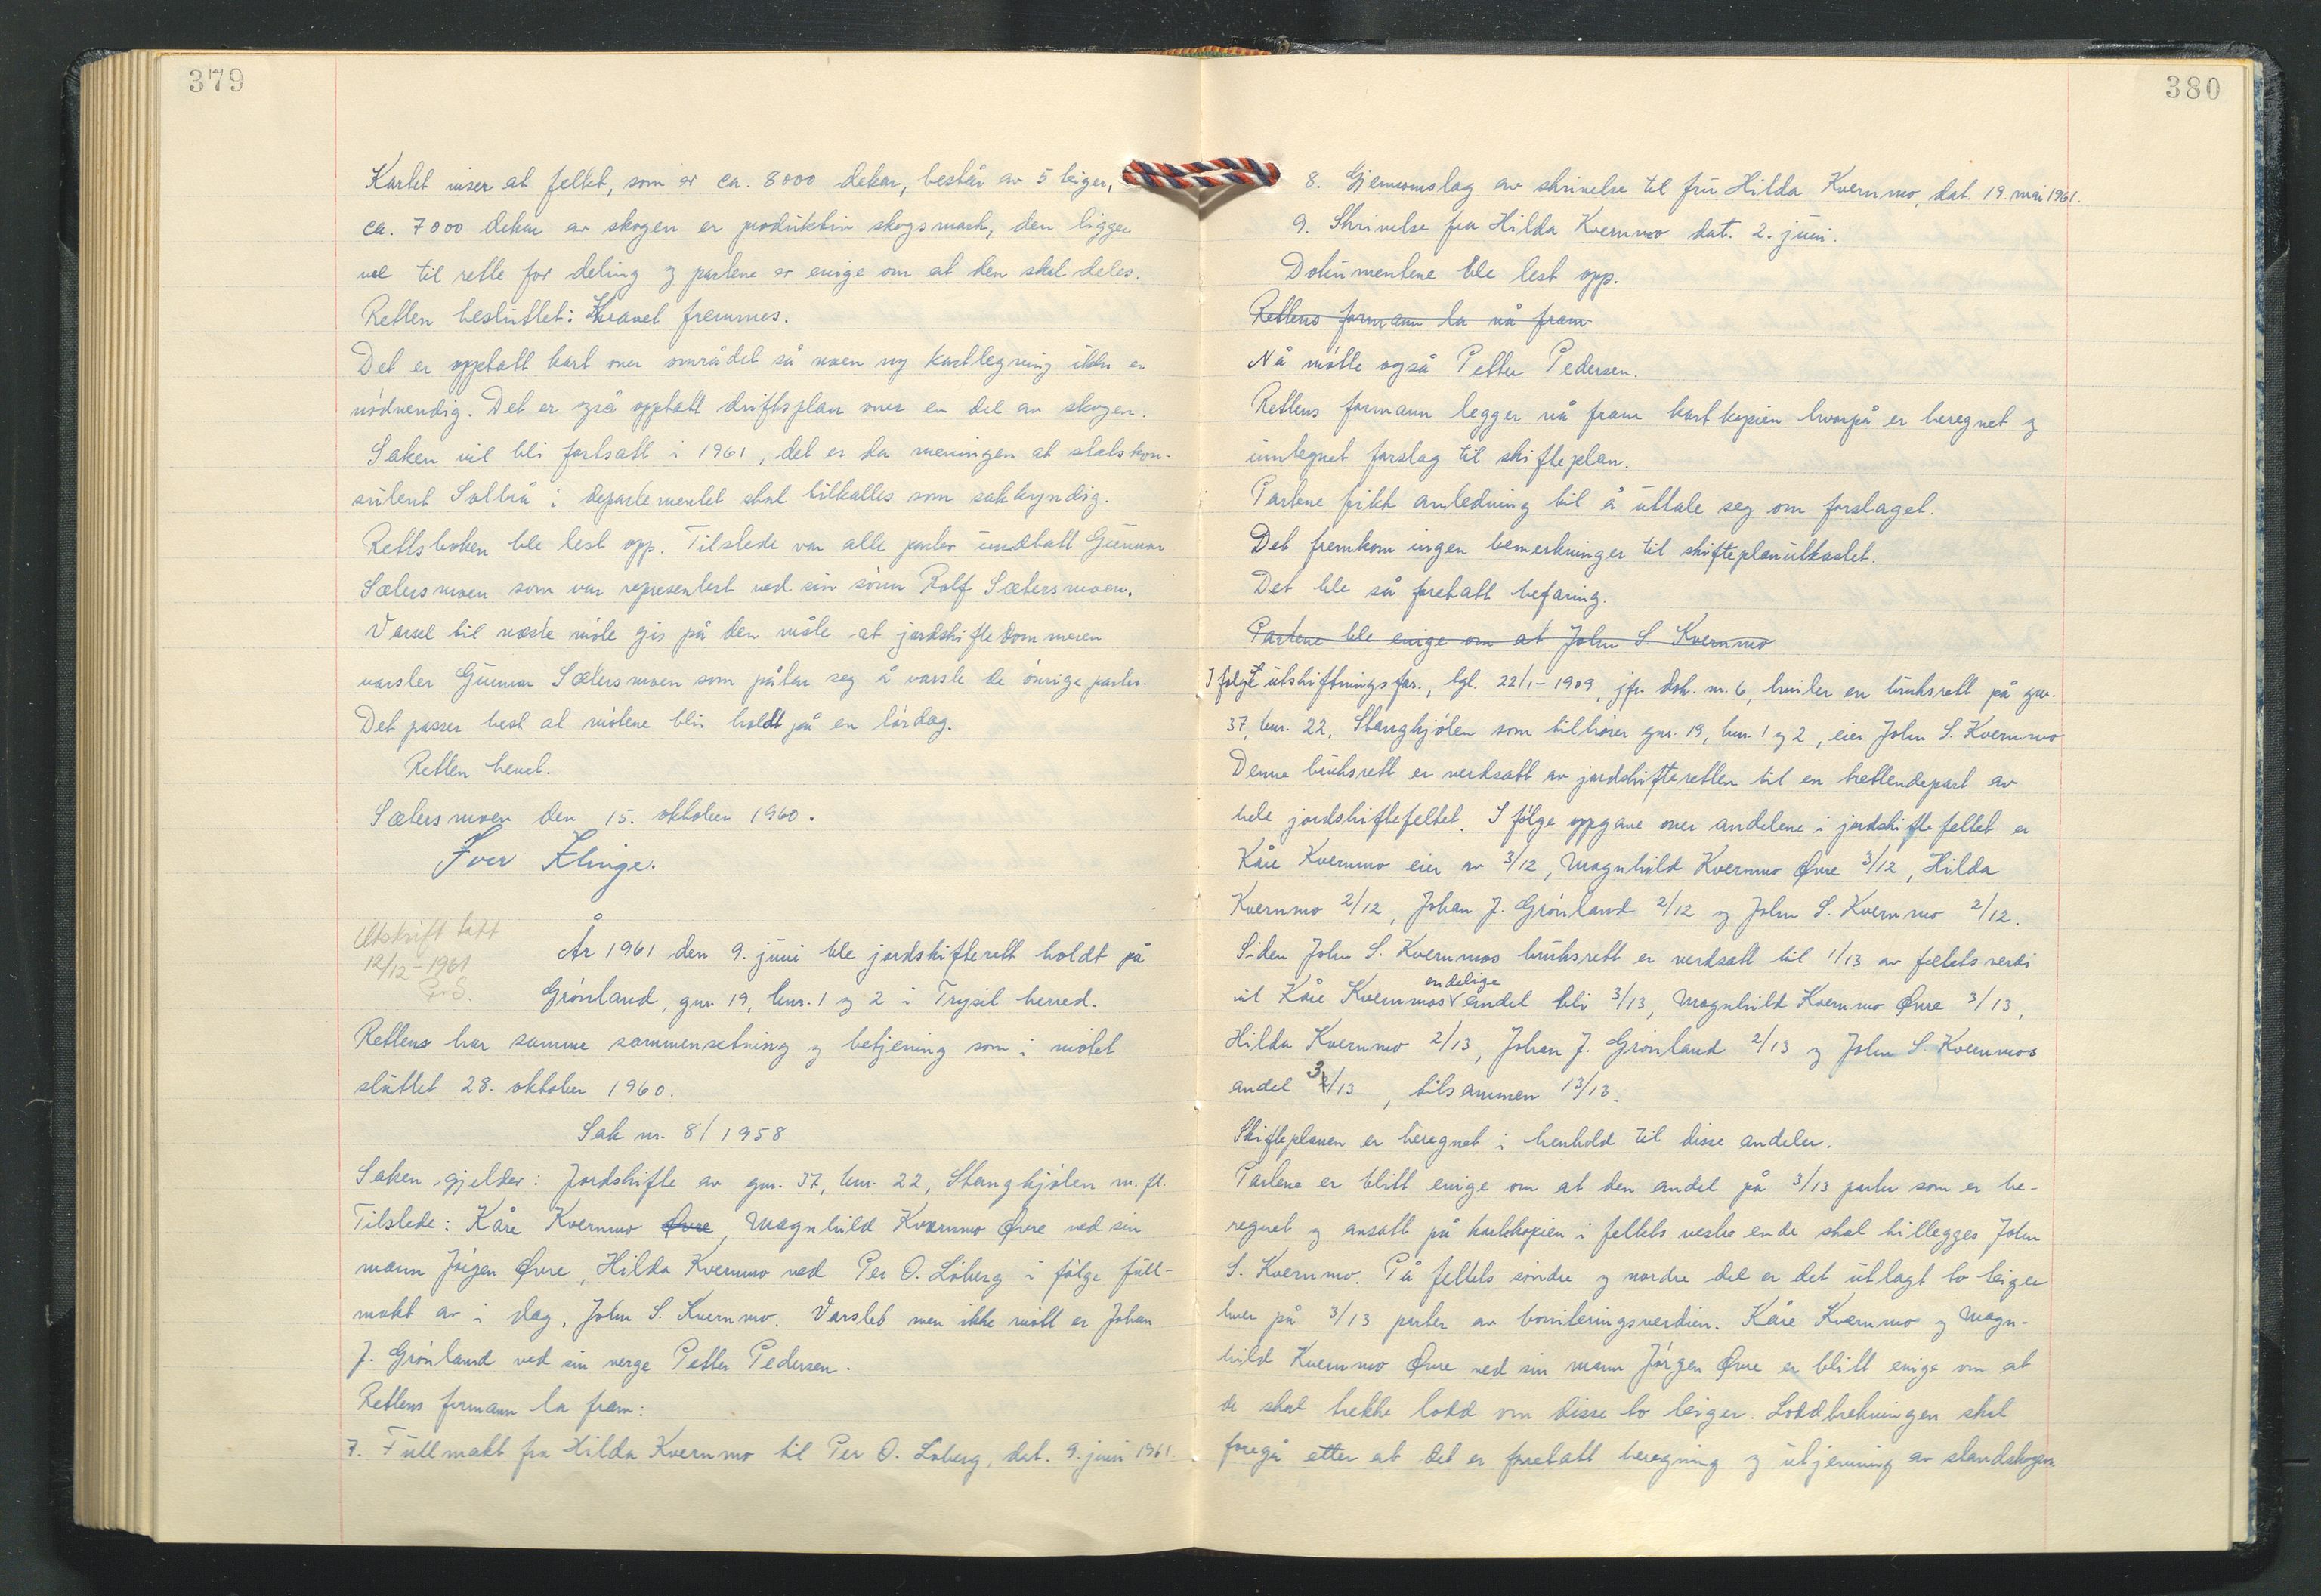 379
Kartet viser at feltet, som er ca. 8000 dekar, består av 5 teiger,
ca. 7000 dekar av skogen er produktiv skogsmark, den ligger
vel til rette for deling og partene er enige om at den skal deles.
Retten besluttet: Kravet fremmes.
Det er opptatt kart over området så noen ny kartlegning ikke er
nödvendig. Det er også opptatt driftsplan over en del av skogen.
Saken vil bli fortsatt i 1961, det er da meningen at statskon-
sulent Solbrå i departementet skal tilkalles som sakkyndig.
Rettsboken ble lest opp. Tilstede var alle parter unntatt Gunnar
Sætersmoen som var representert ved sin sönn Rolf Sætersmoen.
Varsel til neste möte gis på den måte at jordskiftedommeren
varsler Gunnar Sætersmoen som påtar seg å varsle de övrige parter.
Det passer best at mötene blir holdt på en lördag.
Retten hevet.
Sætersmoen den 15. oktober 1960.
Iver Klinge.
Utskrift tatt
12/12-1961
År 1961 den 9. juni ble jordskifterett holdt på
Grönland, gnr. 19, bnr. 1 og 2 i Trysil herred.
Rettens har samme sammensetning og betjening som i mötet
sluttet 28. oktober 1960.
Sak nr. 8/1958
Saken gjelder: Jordskifte av gnr. 37, bnr. 22, Stangkjölen m. fl.
Tilstede: Kåre Kvernmo Øvre, Magnhild Kvernmo Øvre ved sin
mann Jörgen Øvre, Hilda Kvernmo ved Per O. Löberg i fölge full-
makt av i dag, John S. Kvernmo. Varslet men ikke mött er Johan
J. Grönland ved sin verge Petter Pedersen.
Rettens formann la fram:
7. Fullmakt fra Hilda Kvernmo til Per O. Löberg, dat. 9. juni 1961.
380
8. Gjennomslag av skrivelse til fru Hilda Kvernmo, dat. 19. mai 1961.
9. Skrivelse fra Hilda Kvernmo dat. 2. juni.
Dokumentene ble lest opp.
Rettens formann la nå fram
Nå mötte også Petter Pedersen.
Rettens formann legger nå fram kartkopien hvorpå er beregnet og
inntegnet forslag til skifteplan.
Partene fikk anledning til å uttale seg om forslaget.
Det fremkom ingen bemerkninger til skifteplanutkastet.
Det ble så foretatt befaring.
Partene ble enige om at John S. Kvernmo
I følge utskiftningsfor., tgl. 22/1-1909, jfr. dok. nr. 6, hviler en bruksrett på gnr.
37, bnr. 22, Stangkjölen som tilhörer gnr. 19, bnr. 1 og 2, eier John S. Kvernmo
Denne bruksrett er verdsatt av jordskifteretten til en trettendepart av
hele jordskiftefeltet. I fölge oppgave over andelene i jordskiftefeltet er
Kåre Kvernmo eier av 3/12, Magnhild Kvernmo Øvre 3/12, Hilda
Kvernmo 2/12, Johan J. Grönland 2/12 og John S. Kvernmo 2/12.
Siden John S. Kvernmos bruksrett er verdsatt til 1/13 av feltets verdi
vil Kåre Kvernmos endelige andel bli 3/13, Magnhild Kvernmo Øvre 3/13,
Hilda Kvernmo 2/13, Johan J. Grönland 2/13 og John S. Kvernmos
andel 3/13, tilsammen 13/13.
Skifteplanen er beregnet i henhold til disse andeler.
Partene er blitt enige om at den andel på 3/13 parter som er be-
regnet og avsatt på kartkopien i feltets vestre ende skal tillegges John
S. Kvernmo. På feltets söndre og nordre del er det utlagt to teiger
hver på 3/13 parter av boniteringsverdien. Kåre Kvernmo og Magn-
hild Kvernmo Øvre ved sin mann Jörgen Øvre er blitt enige om at
de skal trekke lodd om disse to teiger. Loddtrekningen skal
foregå etter at det er foretatt beregning og utjevning av standskogen